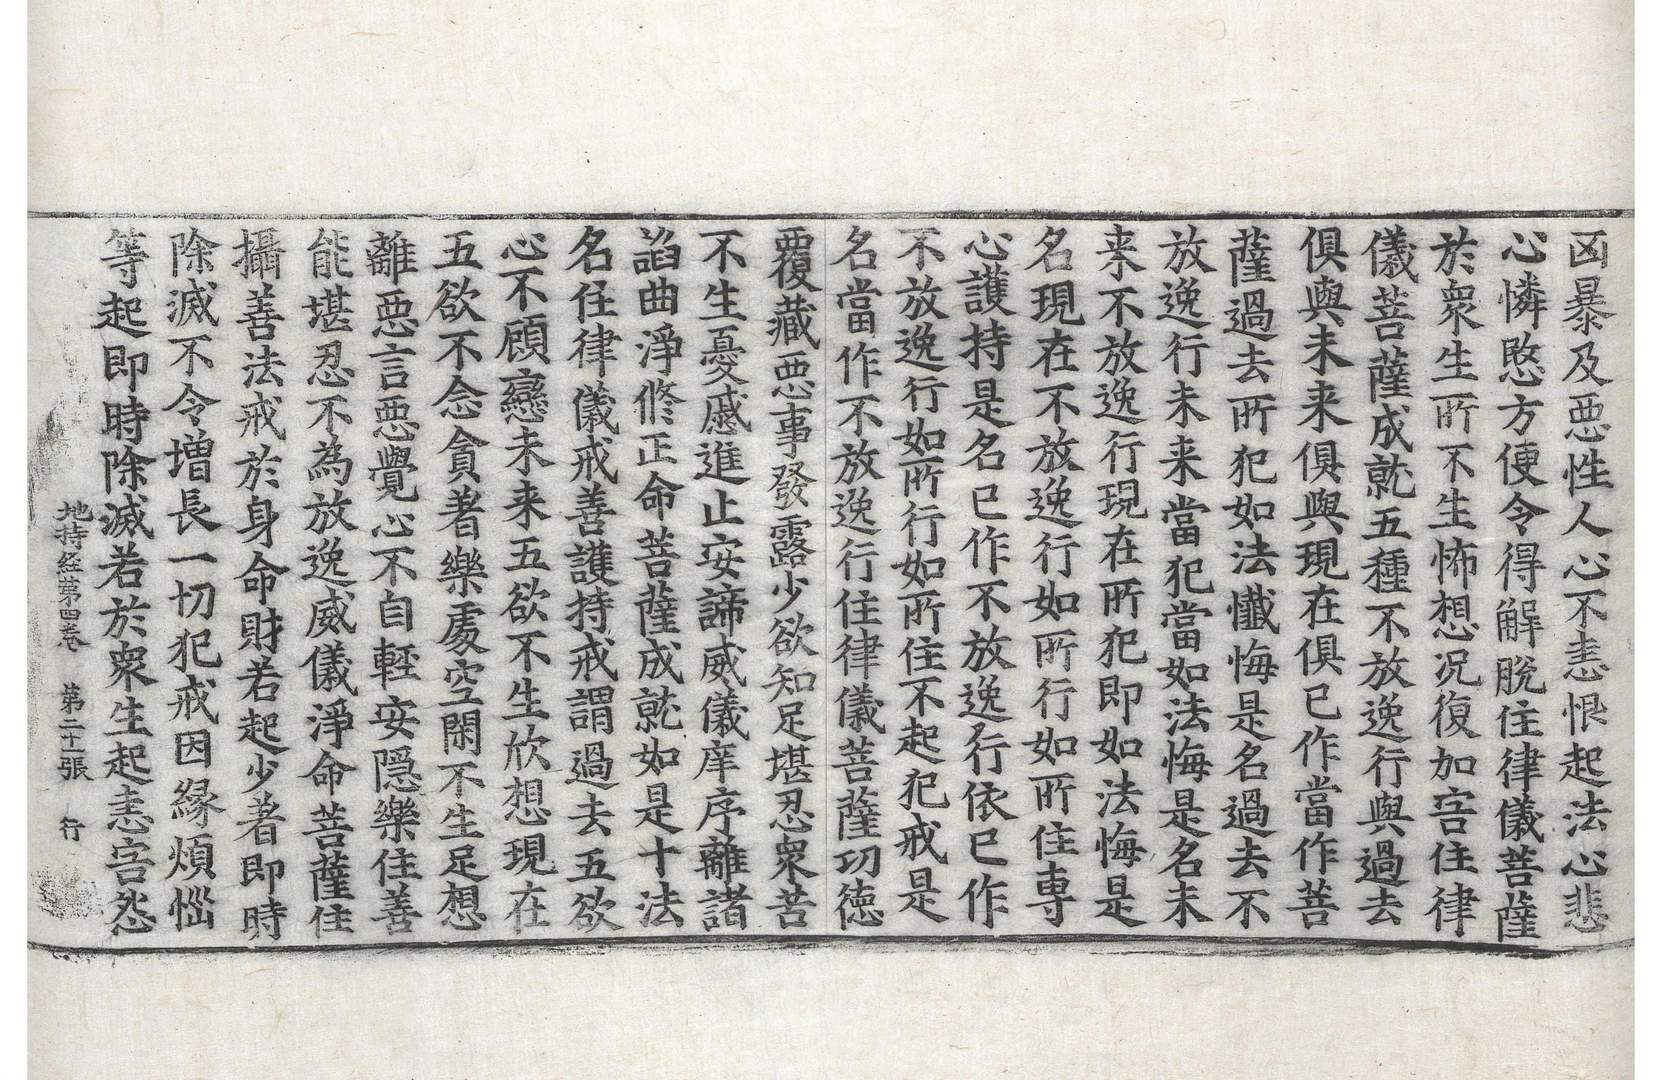 凶暴及惡性人心不恚恨起法心悲
心憐愍方便令得解脫住律儀菩薩
於衆生所不生怖想况復加害住律
儀菩薩成就五種不放逸行與過去
俱與未来俱與現在俱已作當作菩
薩過去所犯如法懺悔是名過去不
放逸行未来當犯當如法悔是名未
来不放逸行現在所犯即如法悔是
名現在不放逸行如所行如所住專
心護持是名已作不放逸行依已作
不放逸行如所行如所住不起犯戒是
名當作不放逸行住律儀菩薩功德
覆藏惡事發露少欲知足堪忍衆苦
不生憂慼進止安諦威儀庠序離諸
諂曲淨修正命菩薩成就如是十法
名住律儀戒善護持戒謂過去五欲
心不顧戀未来五欲不生欣想現在
五欲不念貪著樂處空閑不生足想
離惡言惡覺心不自輕安隱樂住善
能堪忍不為放逸威儀淨命菩薩住
攝善法戒於身命財若起少著即時
除滅不令增長一切犯戒因緣煩惱
等起即時除滅若於衆生起恚害怨
地持經第四卷 第二十張 行